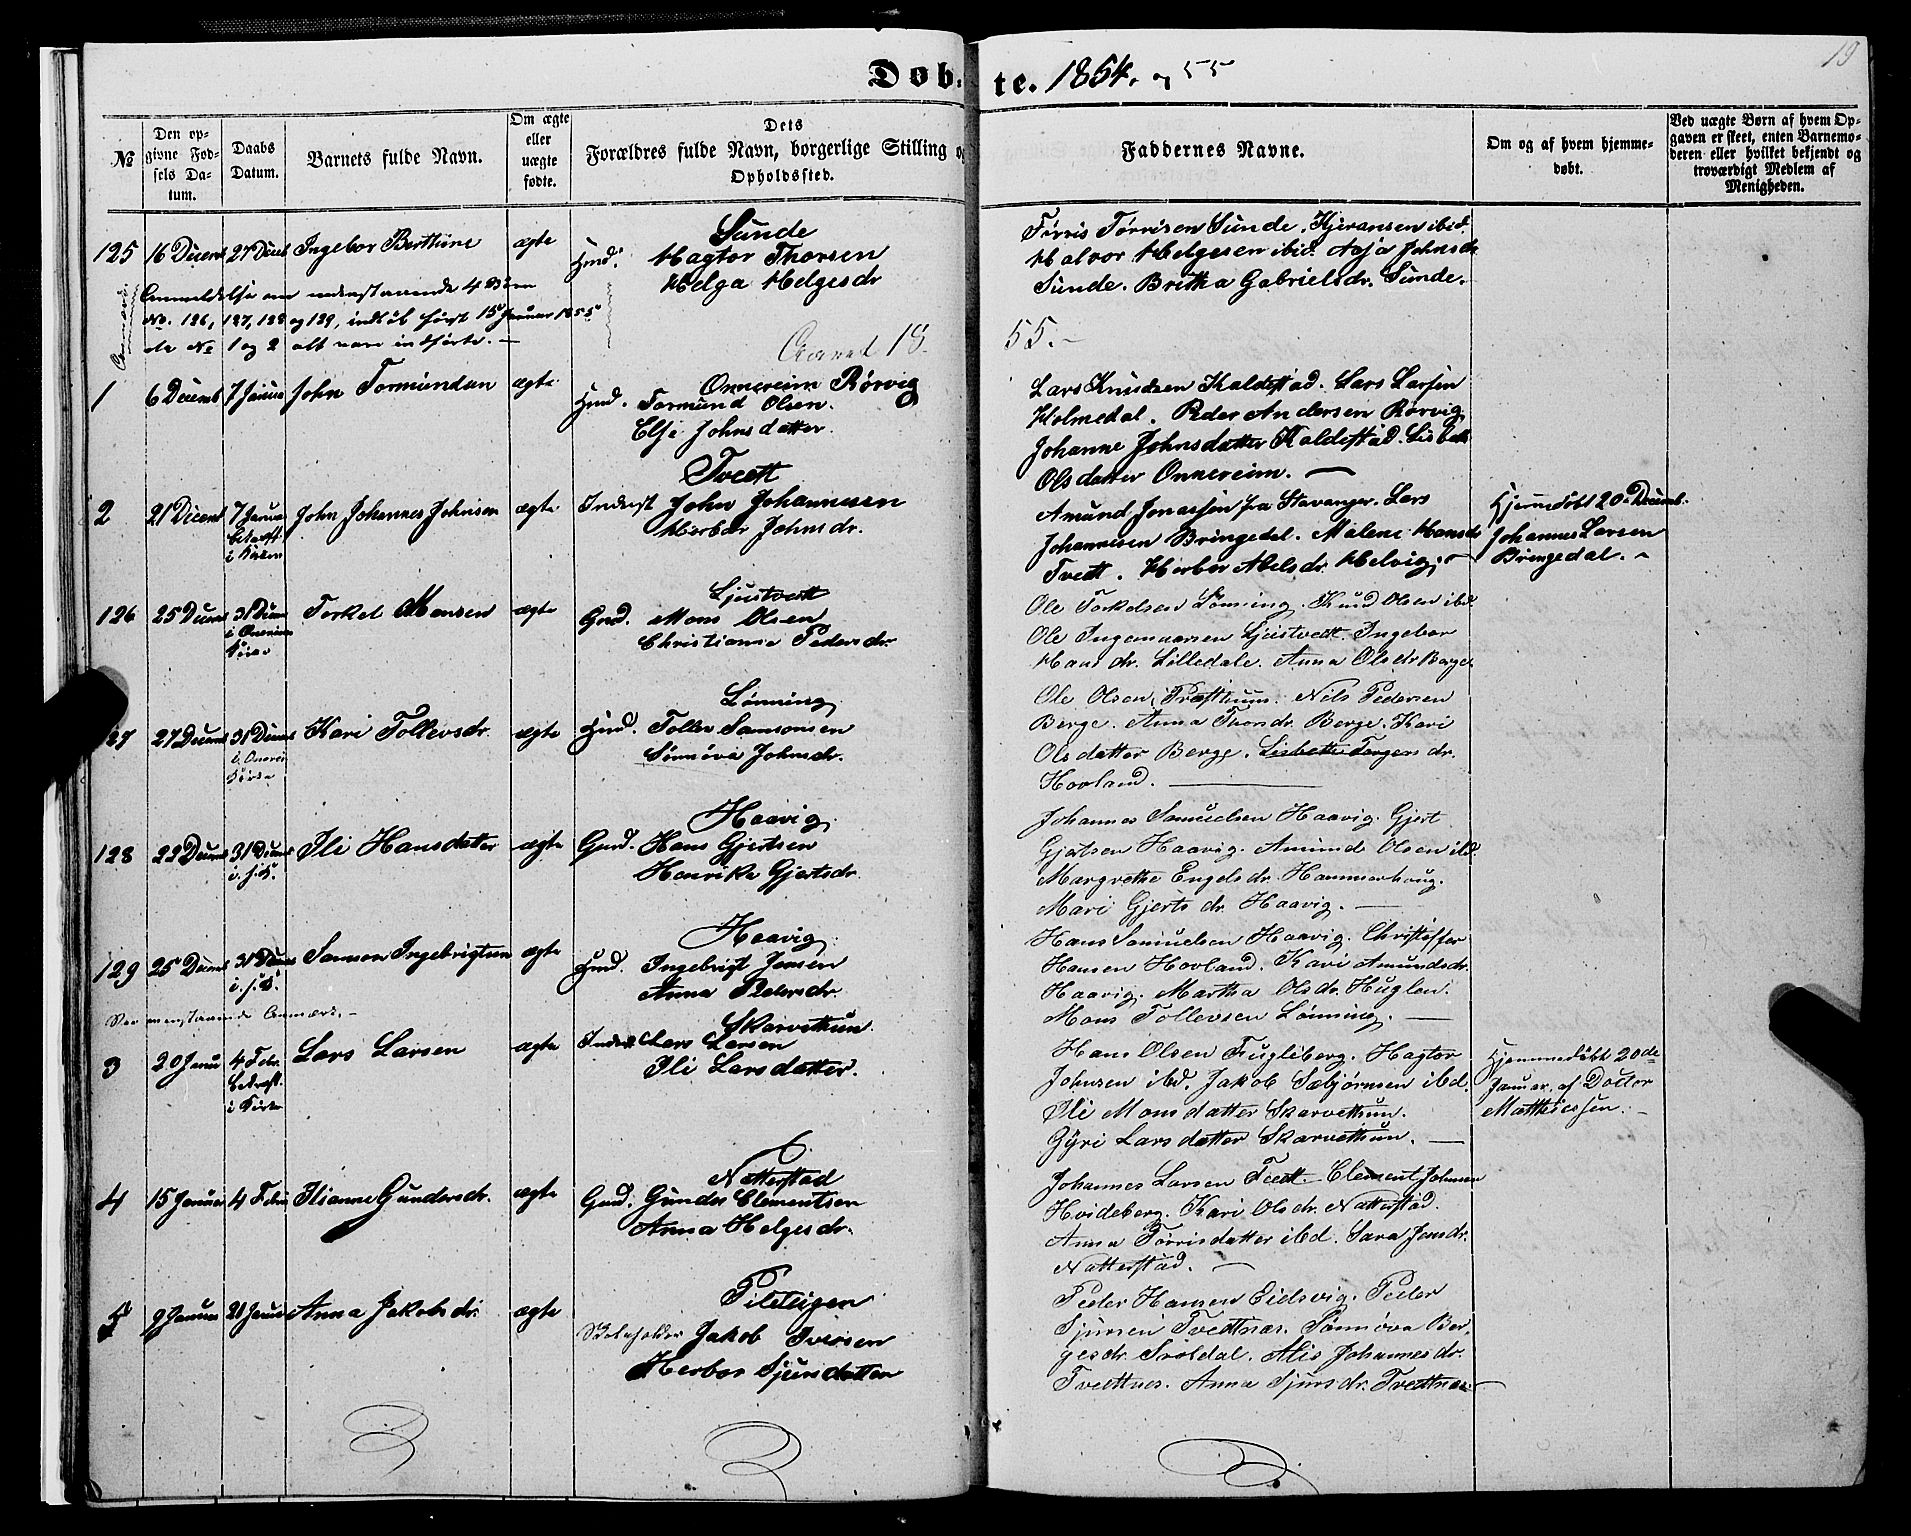 19
Døb- te. 1854. og 55
№
Den op-
givne Fød-
sels Da-
tum.
Daabs
Datum.
Barnets fulde Navn.
Om ægte
eller
uægte
fødte.
Dets
Forældres fulde Navn, borgerlige Stilling o
Opholdssted.
Faddernes Navne.
Om og af hvem hjemme-
døbt.
Ved uægte Børn af hvem Op-
gaven er skeet, enten Barnemo-
deren eller hvilket bekjendt og
troværdigt Medlem af
Menigheden.
125 16 Decemb 27 Decb Ingebor Berthine ægte
Sunde
Hmd. Hagtor Thorsen
Helga Helgesdr
Tørris Tørrisen Sunde, Kjeransen ibid.
Halvor Helgesen ibid. Asja Johnsdr
Sunde. Britha Gabrielsdr. Sunde.
Anmeldelse om nedenstaaende 4 Børn
No. 126, 127, 128 og 129, indløb først 15 Januar 1855
da No 1 og 2 alt vare indførte. —
Aaret 18 55. —
1 6 Decemb 7 Januar John Tormundsen ægte
Onnereim Rørvig
Hmd. Tormund Olsen.
Else Johnsdatter
Lars Knudsen Kaldestad. Lars Larsen
Holmedal. Peder Andersen Rørvig
Johanne Johnsdatter Kaldestad. Lisbeth
Olsdatter Onnereim. —
2 21 Decemb 7 Januar
i Kirken
John Johannes Johnsen ægte
Tvedt
Inderst John Johannessen
Herbor Johnsdr.
Amund Jonassen fra Stavanger. Lars
Johannesen Bringedal. Malene Hansdr
Tvedt. Herbor Abelsdr. Helvig. —
Hjemmedøbt 20 Decemb.
Johannes Larsen
Bringedal. —
126 25 Decemb 31 Decm
i Onarim
Kirke
Torkel Monsen ægte
Ljustvedt
Gmd. Mons Olsen
Christianne Pedersdr.
Ole Torkelsen Lønning. Knud Olsen ibd.
Ole Ingemarsen Ljustvedt. Ingebor
Hansdr. Lilledale. Anna Olsdr Berge
127 27 Decemb 31 Decemb
i Onarei
Kirke
Kari Tollevsdr. ægte
Lønning
Hmd. Tollev Samsonsen
Sønnøva Johnsdr.
Ole Olsen Præsthuus. Nils Pedersen
Berge. Anna Thorsdr. Berge. Kari
Olsdatter Berge. Lisbeth Torgersdr.
Hovland. —
128 22 Decemb 31 Decmb
i. s. K.
Ili Hansdatter ægte
Haavig
Gmd. Hans Gjertsen
Henrikke Gjertsdr.
Johannes Samuelsen Haavig. Gjert
Gjertsen Haavig. Amund Olsen ibd.
Margrethe Engelsdr. Hammerhoug.
Mari Gjertsdr. Haavig. —
129 25 Decemb 31 Decmb
i. s. K.
Samson Ingebrigtsen ægte
Haavig
Hmd. Ingebrigt Jensen
Anna Pedersdr.
Hans Samuelsen Haavig. Christoffer
Hansen Hovland. Kari Amundsdr.
Haavig. Martha Olsdr. Huglen.
Mons Tollevsen Lønning. —
3 20 Janu 4 Febr.
Bekræft.
i Kirke
Lars Larsen ægte
Skarvethun
Inderst Lars Larsen
Ili Larsdatter.
Hans Olsen Fugleberg. Hagtor
Johnsen ibd. Jakob Sæbjørnsen ibd.
Ili Monsdatter Skarvethun.
Gyri Larsdatter Skarvethun. —
Hjemmedøbt 20de
Januar. af Doctor
Matthiessen. —
4 15 Januar 4 Febru Ilianne Gundersdr. ægte
Natterstad
Gmd. Gunder Clementsen
Anna Helgesdr.
Johannes Larsen Tvedt. Clement Johnsen
Hvideberg. Kari Olsdr. Natterstad.
Anna Tørrisdatter ibd. Sara Jensdr.
Natterstad. —
5 9 Januar 28 Januar Anna Jakobsdr. ægte
Pileteigen
Skoleholder Jakob Iversen
Herbor Sjursdatter
Peder Hansen Eidsvig. Peder
Sjursen Tvedtnæs. Sønnøva Ber-
gesdr. Svoldal. Alis Johannesdr.
Tvedtnes. Anna Sjursdr. Tvedtnæs —